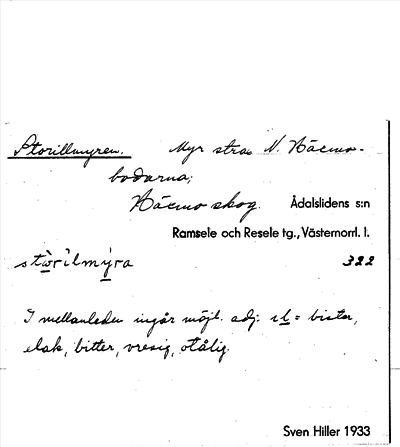 Storillmyren. Myr strax N. Häcmo-
bodarna;
Häcmo skog. Ådalslidens s:n
Ramsele och Resele tg., Västernorrl. l.
stò̱r'ilmy̱ra 322
I mellanleden ingår möjl. adj. il̲ = bister,
elak, bitter, vresig, otålig.
Sven Hiller 1933